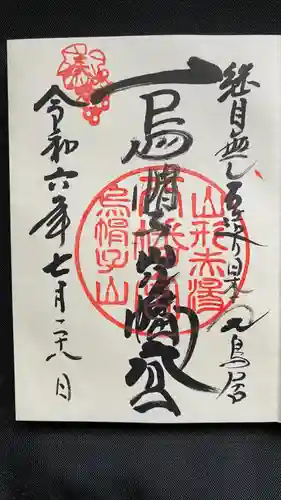 継目無し石造り日本一の鳥居
烏帽子山八幡宮
山形赤湯
烏帽子山
令和六年七月二十八日